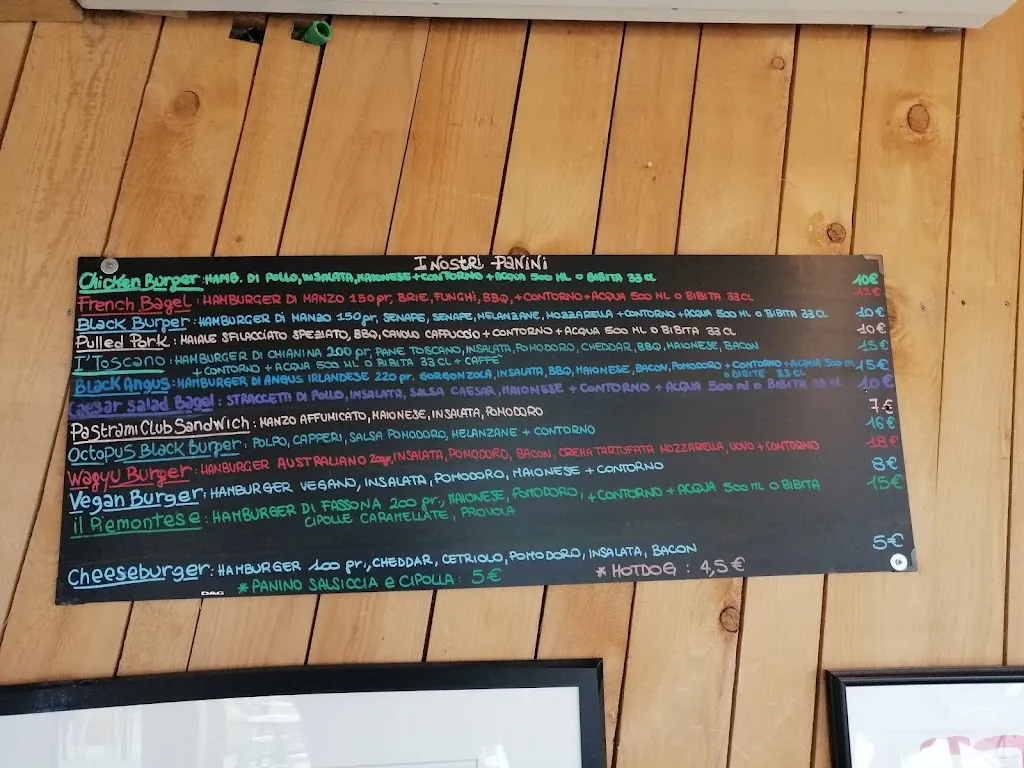 I NOSTRI PANINI
Chicken Burger: HAMB. DI POLLO, INSALATA, MAIONESE + CONTORNO + ACQUA 500 ML O BIBITA 33 CL 10€
French Bagel: HAMBURGER DI MANZO 150 gr, BRIE, FUNGHI, BBQ, + CONTORNO + ACQUA 500 ML O BIBITA 33 CL 12€
BLACK BURGER: HAMBURGER DI MANZO 150 gr, SENAPE, SENAPE, MELANZANE, MOZZARELLA + CONTORNO + ACQUA 500 ML O BIBITA 33 CL 10€
Pulled Pork: MAIALE SFILACCIATO SPEZIATO, BBQ, CAVOLO CAPPUCCIO + CONTORNO + ACQUA 500 ML O BIBITA 33 CL 10€
I' Toscano: HAMBURGER DI CHIANINA 200 gr, PANE TOSCANO, INSALATA, POMODORO, CHEDDAR, BBQ, MAIONESE, BACON 15€
+ CONTORNO + ACQUA 500 ML O BIBITA 33 CL + CAFFE'
BLACK ANGUS: HAMBURGER DI ANGUS IRLANDESE 220 gr. GORGONZOLA, INSALATA, BBQ, MAIONESE, BACON, POMODORO + CONTORNO + ACQUA 500 ML 15€
O BIBITE 33 CL
Caesar Salad Bagel: STRACCETTI DI POLLO, INSALATA, SALSA CAESAR, MAIONESE + CONTORNO + ACQUA 500 ml O BIBITA 33 CL 10€
Pastrami Club Sandwich: MANZO AFFUMICATO, MAIONESE, INSALATA, POMODORO 7€
Octopus Black Burger: POLPO, CAPPERI, SALSA POMODORO, MELANZANE + CONTORNO 16€
Wagyu Burger: HAMBURGER AUSTRALIANO 200gr, INSALATA, POMODORO, BACON, CREMA TARTUFATA MOZZARELLA, UOVO + CONTORNO 18€
Vegan Burger: HAMBURGER VEGANO, INSALATA, POMODORO, MAIONESE + CONTORNO 8€
il Piemontese: HAMBURGER DI FASSONA 200 gr., MAIONESE, POMODORO, + CONTORNO + ACQUA 500 ML O BIBITA 15€
CIPOLLE CARAMELLATE, PROVOLA
Cheeseburger: HAMBURGER 100 gr., CHEDDAR, CETRIOLO, POMODORO, INSALATA, BACON 5€
* PANINO SALSICCIA e CIPOLLA: 5€ * HOTDOG: 4,5€
DAG